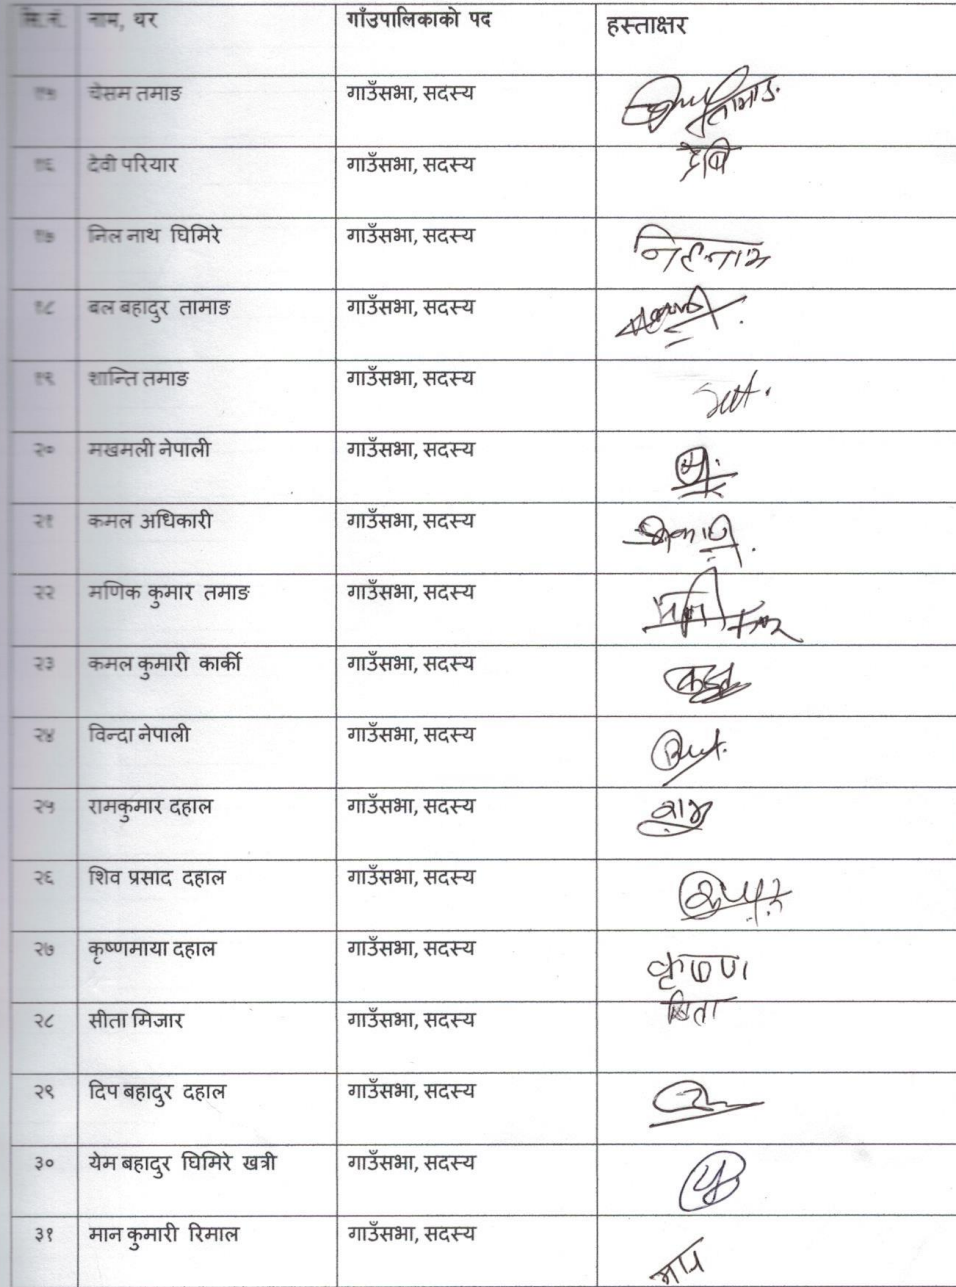 सि.नं. नाम, थर गाँउपालिकाको पद हस्ताक्षर
१५ चेसम तमाङ गाउँसभा, सदस्य तामाङ
१६ देवी परियार गाउँसभा, सदस्य देबि
१७ निल नाथ घिमिरे गाउँसभा, सदस्य
१८ बल बहादुर तामाङ गाउँसभा, सदस्य
१९ शान्ति तमाङ गाउँसभा, सदस्य
२० मखमली नेपाली गाउँसभा, सदस्य
२१ कमल अधिकारी गाउँसभा, सदस्य
२२ मणिक कुमार तमाङ गाउँसभा, सदस्य
२३ कमल कुमारी कार्की गाउँसभा, सदस्य
२४ विन्दा नेपाली गाउँसभा, सदस्य
२५ रामकुमार दहाल गाउँसभा, सदस्य
२६ शिव प्रसाद दहाल गाउँसभा, सदस्य
२७ कृष्णमाया दहाल गाउँसभा, सदस्य कृष्ण
२८ सीता मिजार गाउँसभा, सदस्य सिता
२९ दिप बहादुर दहाल गाउँसभा, सदस्य
३० येम बहादुर घिमिरे खत्री गाउँसभा, सदस्य
३१ मान कुमारी रिमाल गाउँसभा, सदस्य मान